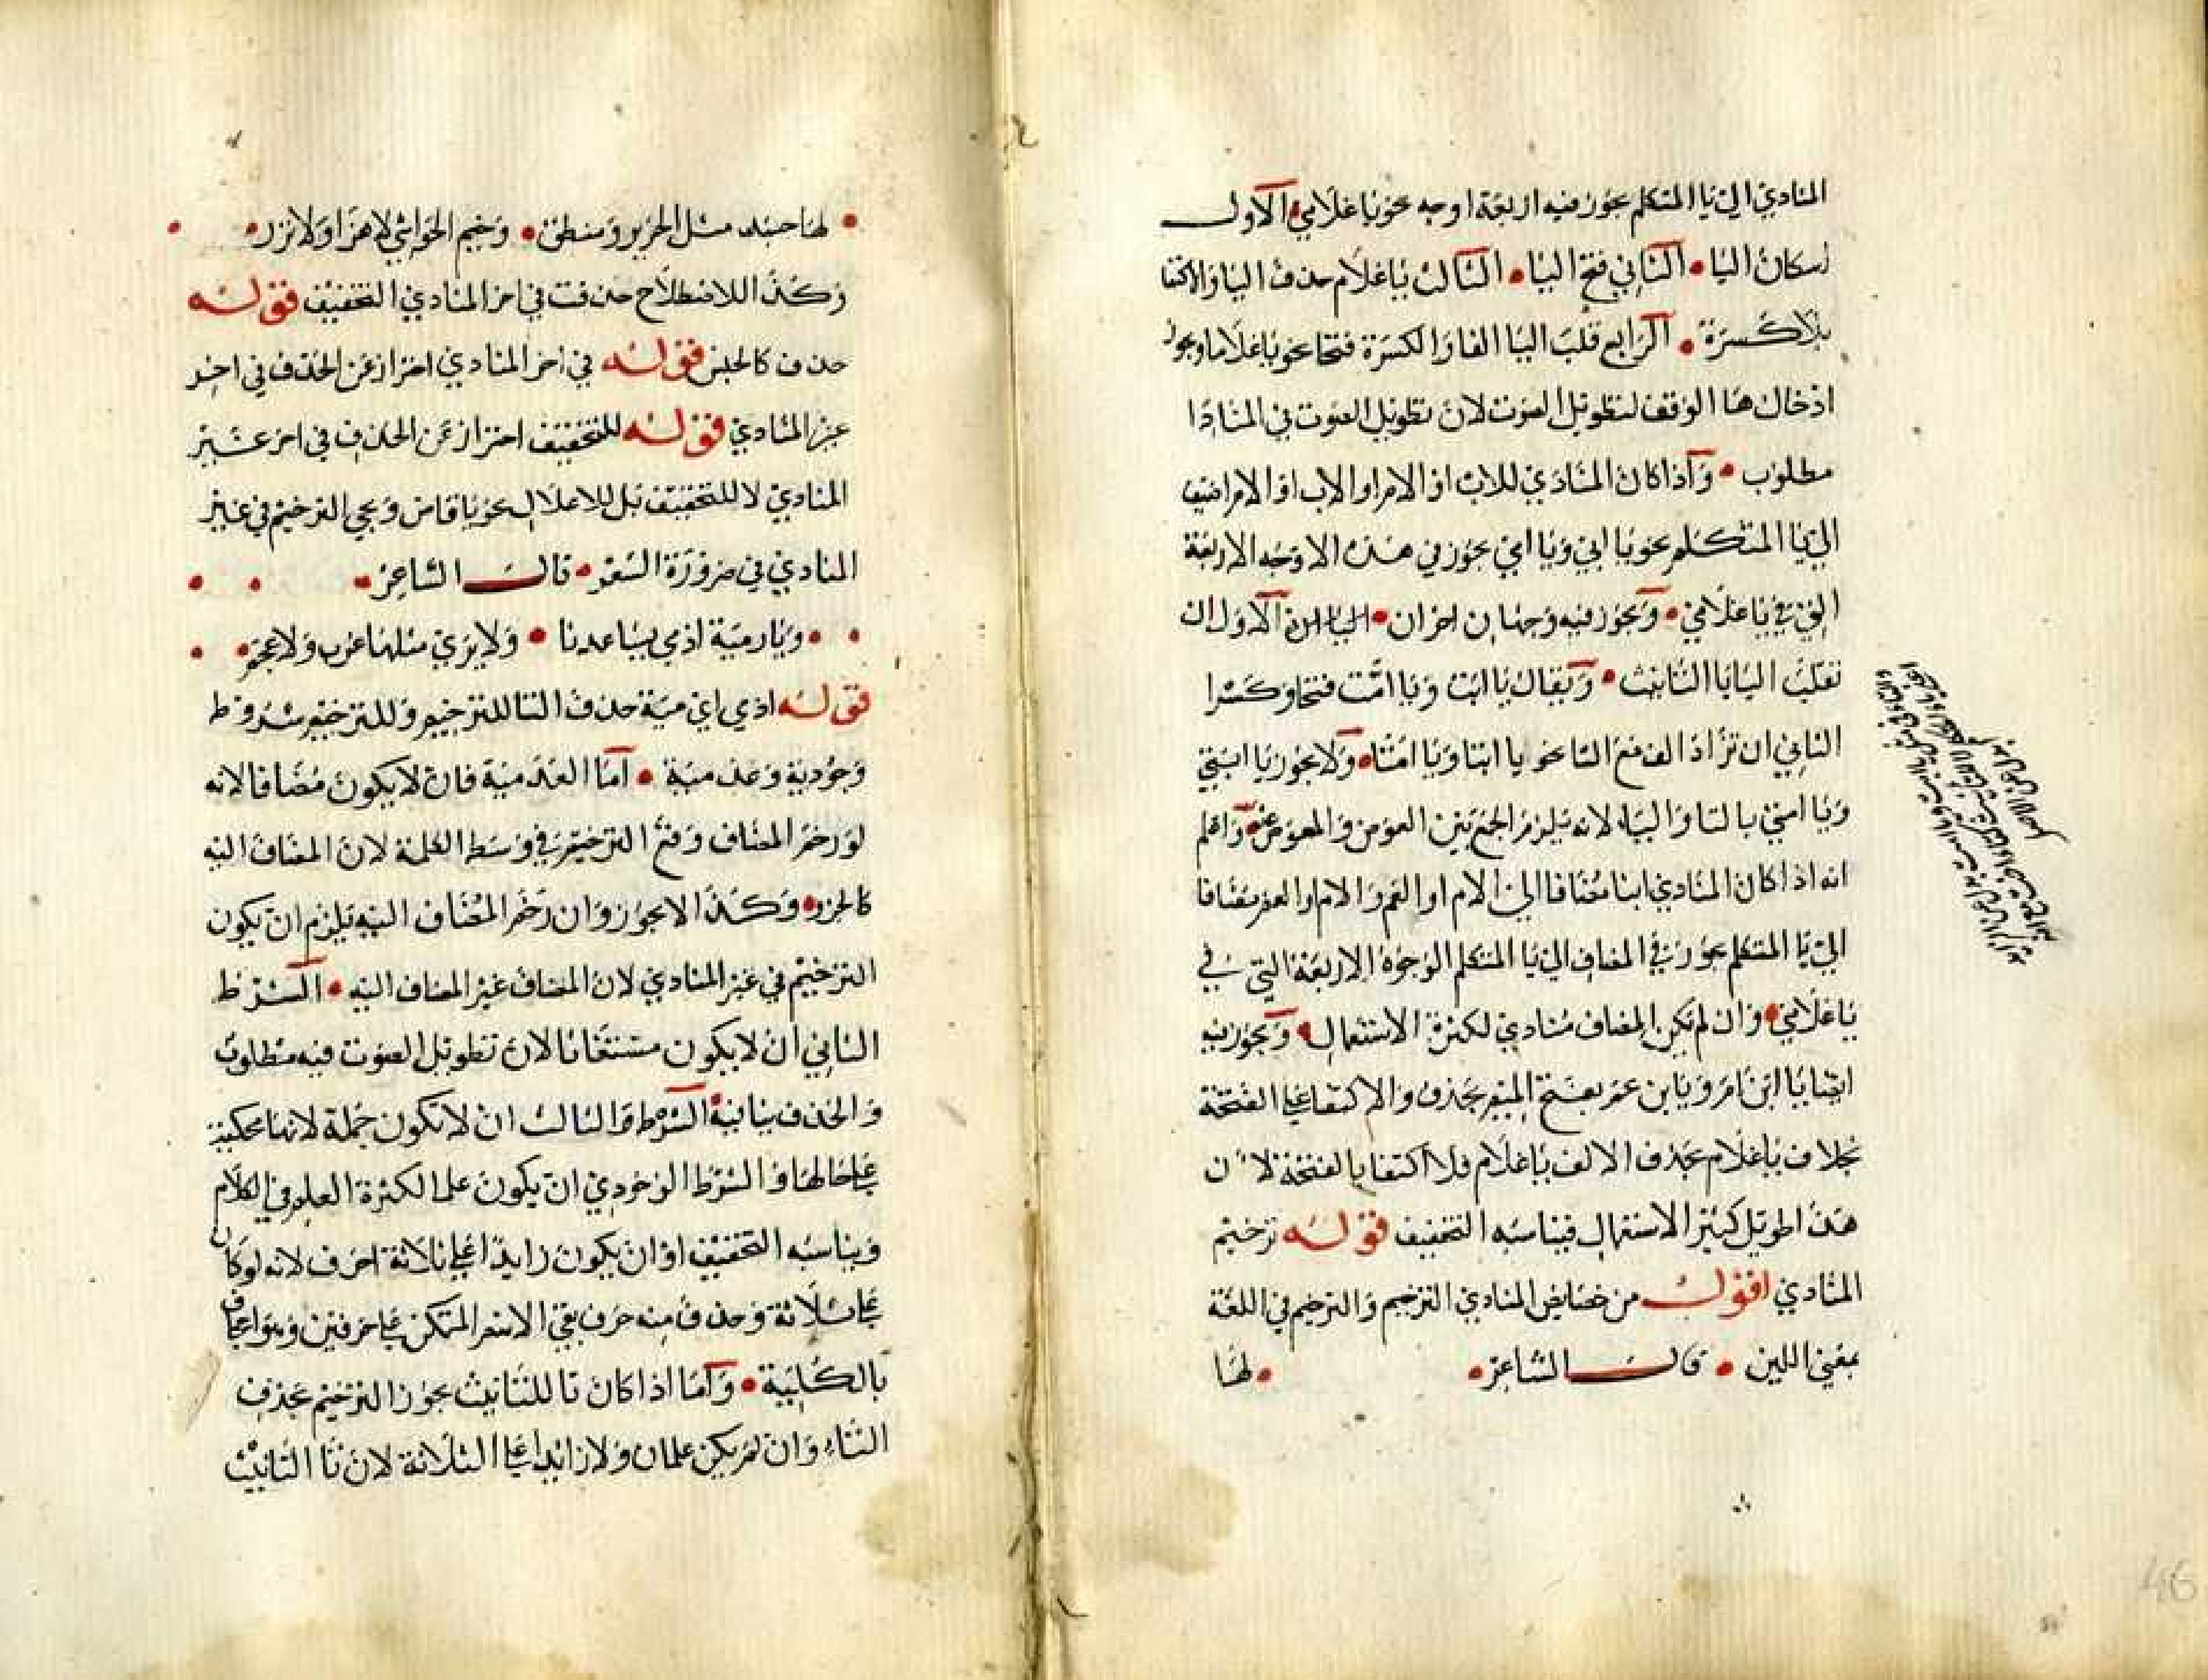 المنادي الى يا المتكلم يجوز فيه اربعة اوجه نحو يا غلامي الاول
اسكان اليا الثاني فتح اليا الثالث يا غلام حذف اليا والاكتفا
بالكسرة الرابع قلب اليا الفا والكسرة فتحا نحو يا غلاما ويجوز
ادخال ها الوقف لتطويل الصوت لان تطويل الصوت في المنادا
مطلوب واذا كان المنادي للاب او الام او الاب او الام اضيفا
الى يا المتكلم نحو يا ابي ويا امي يجوز في هذه الاوجه الاربعة
التي في يا غلامي ويجوز فيه وجهان اخران الاول ان
تقلب اليا يا التانيث ويقال يا ابت ويا امت فتحا وكسرا
الثاني ان تزاد الف مع التا نحو يا ابتا ويا امتاه ولا يجوز يا ابتي
ويا امتي بالتا واليا لانه يلزم الجمع بين العوض والمعوض عنه واعلم
انه اذا كان المنادي ابنا مضافا الى الام او العم والام او العم مضافا
الى يا المتكلم يجوز في المضاف الى يا المتكلم الوجوه الاربعة التي في
يا غلامي وان لم يكن المضاف منادي لكثرة الاستعمال ويجوز فيه
ايضا يا ابن ام ويا بن عم بفتح الميم بحذف والاكتفا على الفتحة
بخلاف يا غلام بحذف الالف يا غلام فلا اكتفا بالفتحة لان
هذا طويل كثير الاستعمال فيناسبه التخفيف قوله ترخيم
المنادي اقول من خصايص المنادي الترخيم والترخيم في اللغة
بمعنى اللين قال الشاعر لها
لها حسد مثل الحرير ومنطق رخيم الحواشي لا هرا ولا نزر
وكذا اللاصطلاح حذفت في اخر المنادي التخفيف فقوله
حذف كالجنس فقوله في اخر المنادي احتراز عن الحذف في اخر
غير المنادي فقوله للتخفيف احتراز عن الحذف في اخر غير
المنادي لا للتخفيف بل للاعلال نحو يا قاض ويجي الترخيم في غير
المنادي في ضرورة الشعر قال الشاعر
ديار مية اذ مي يساعدنا ولا يري مثلها عرب ولا عجم
فقوله اذ مي اي مية حذف التا للترخيم وللترخيم شروط
وجودية وعدمية اما العدمية فان لا يكون مضافا لانه
لو رخم المضاف وقع الترخيم في وسط الكلمة لان المضاف اليه
كالجزو وكذا لا يجوز وان رخم المضاف اليه يلزم ان يكون
الترخيم في غير المنادي لان المضاف غير المضاف اليه الشرط
الثاني ان لا يكون مستغاثا لان تطويل الصوت فيه مطلوب
والحذف ينافيه الشرط والثالث ان لا تكون جملة لانها محكية
على حالها والشرط الوجودي ان يكون علما لكثرة العلم في الكلام
ويناسبه التخفيف او ان يكون زايدا على ثلاثة احرف لانه لو كان
على ثلاثة وحذف منه حرف بقي الاسم المتمكن على حرفين وهو اجحاف
بالكلية واما اذا كان تا للتانيث يجوز الترخيم بحذف
التاء وان لم يكن علما ولا زايدا على الثلاثة لان تا التانيث
46